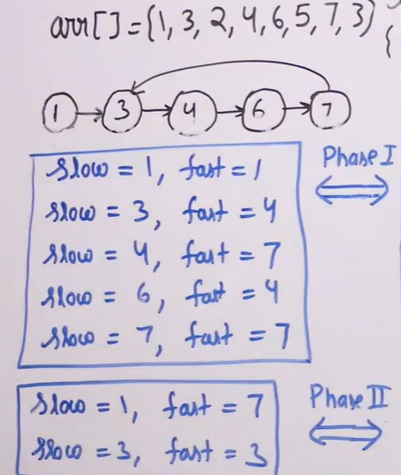 arr[] = {1, 3, 2, 4, 6, 5, 7, 3}
{
1 3 4 6 7
Phase I
slow = 1, fast = 1
slow = 3, fast = 4
slow = 4, fast = 7
slow = 6, fast = 4
slow = 7, fast = 7
Phase II
slow = 1, fast = 7
slow = 3, fast = 3